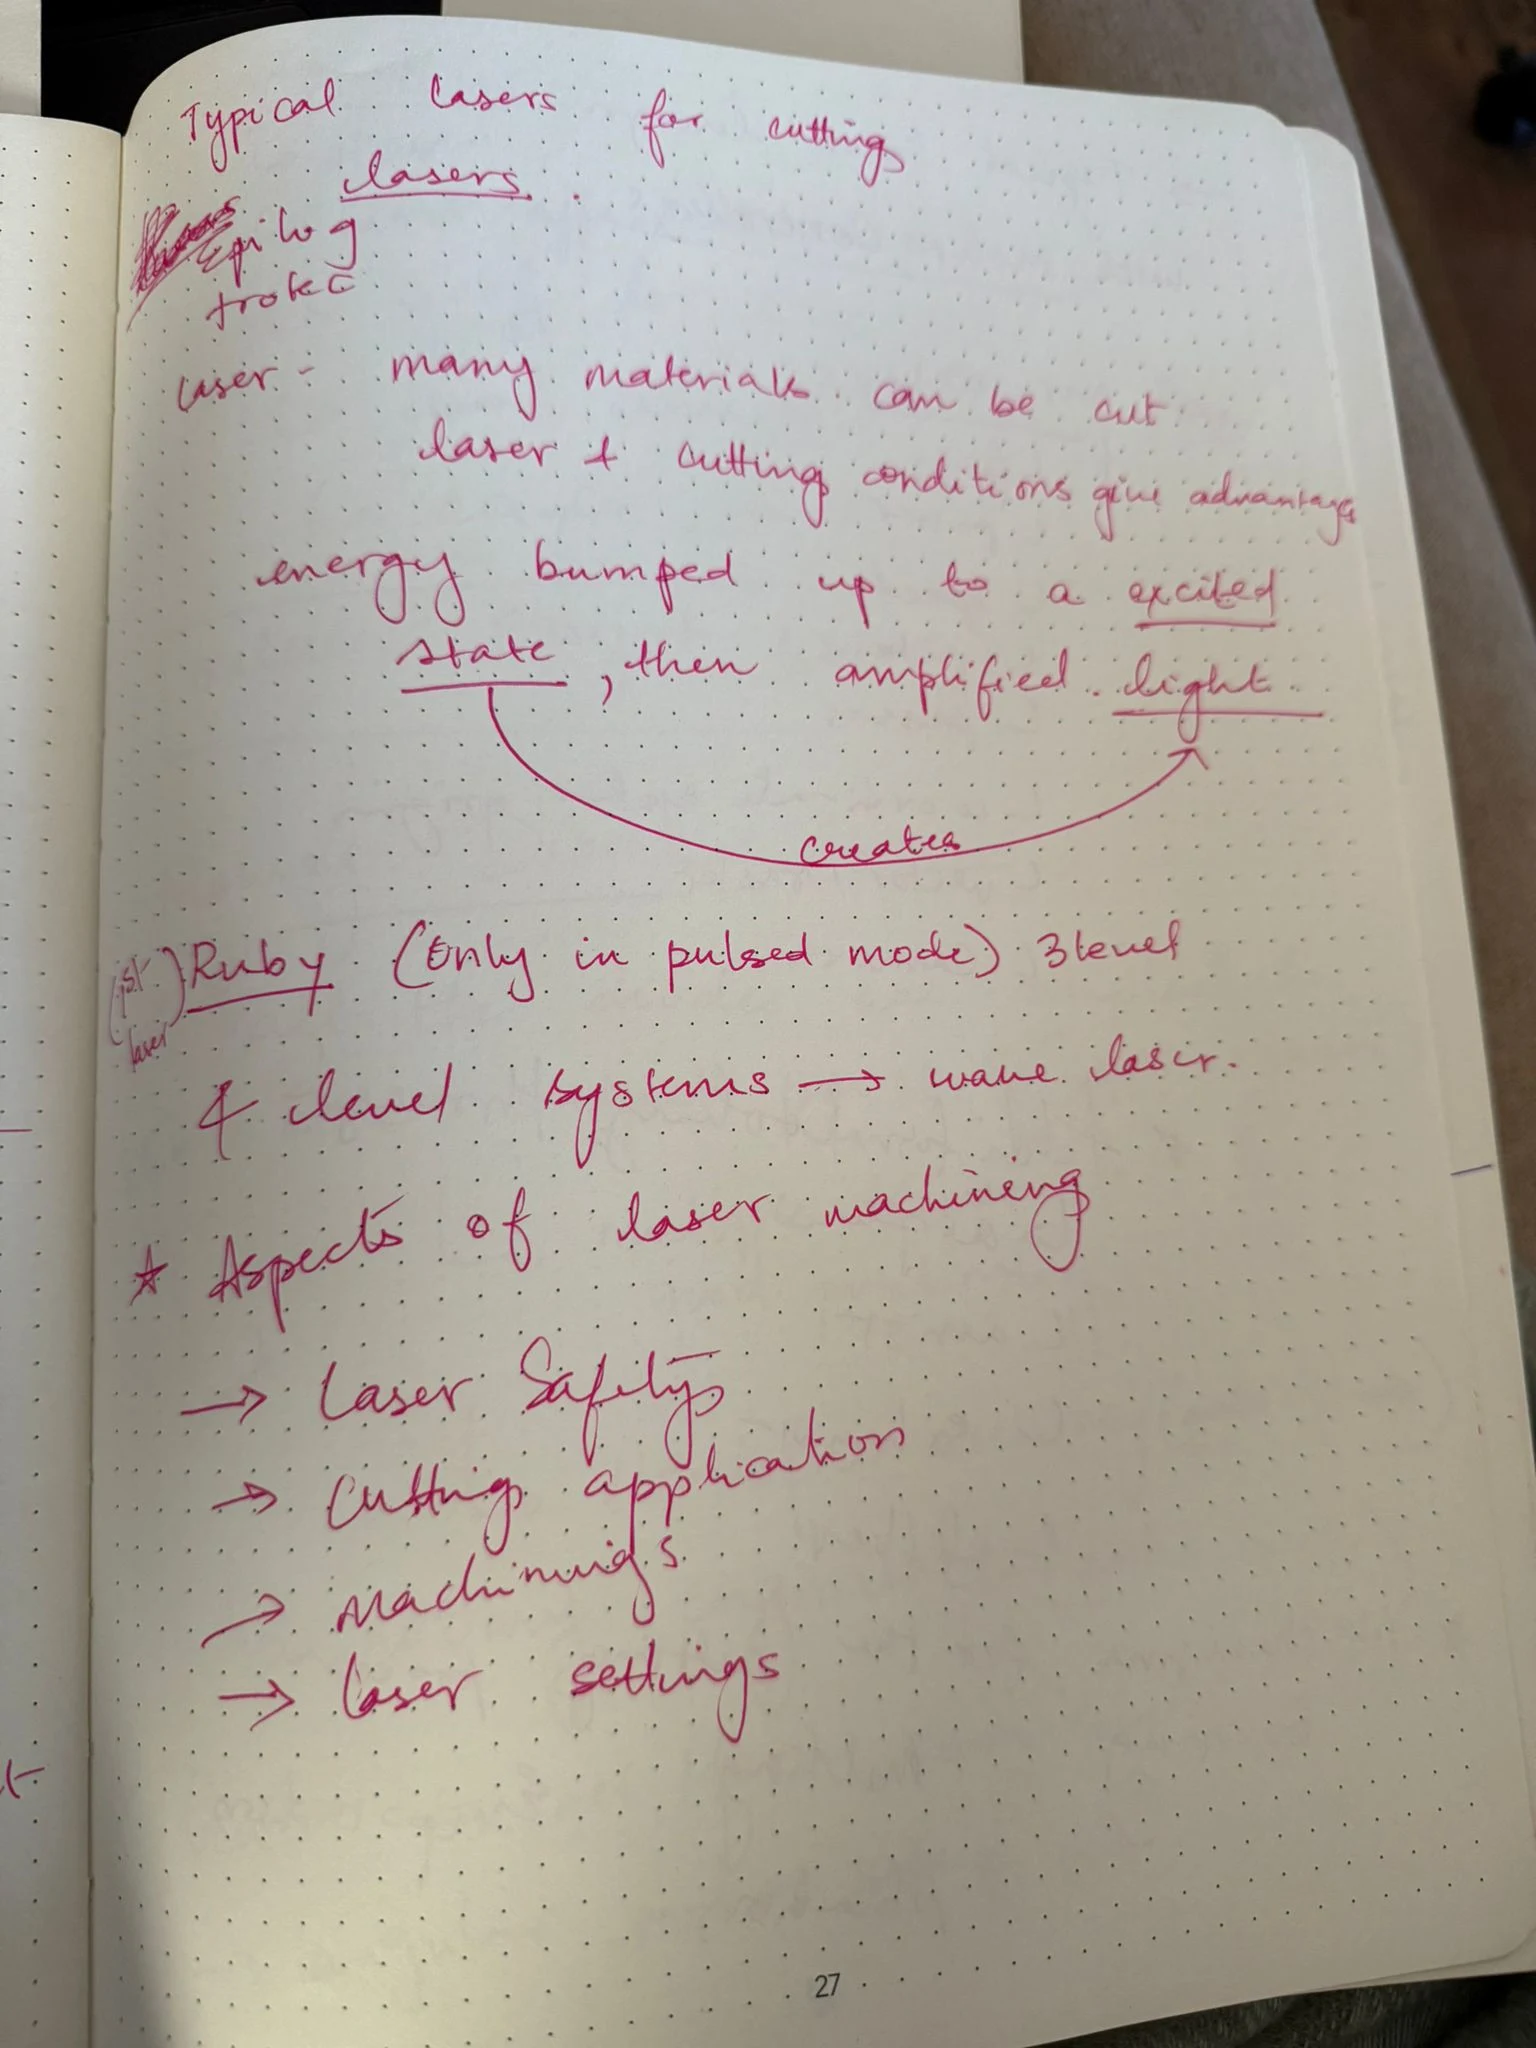 Typical lasers for cutting
lasers.
Epilog
trotec
laser - many materials can be cut
laser + cutting conditions give advantages
energy bumped up to a excited
state, then amplified light
creates
(1st) Ruby (Only in pulsed mode) 3 level
laser
4 level systems → wave laser.
☆ Aspects of laser machining
→ Laser Safety
→ Cutting application
→ Machinings
→ laser settings
27